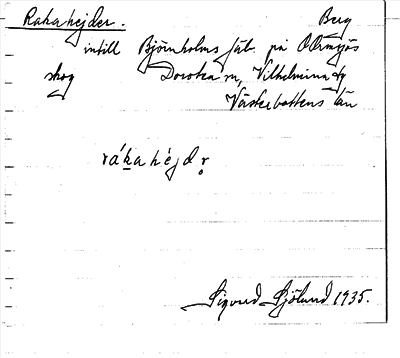 Rakahejder. Berg
intill Björnholms fäb. på Ormsjös
skog Dorotea sn, Vilhelmina tg
Västerbottens län
rákahéjdr̥
Sigurd Sjölund 1935.